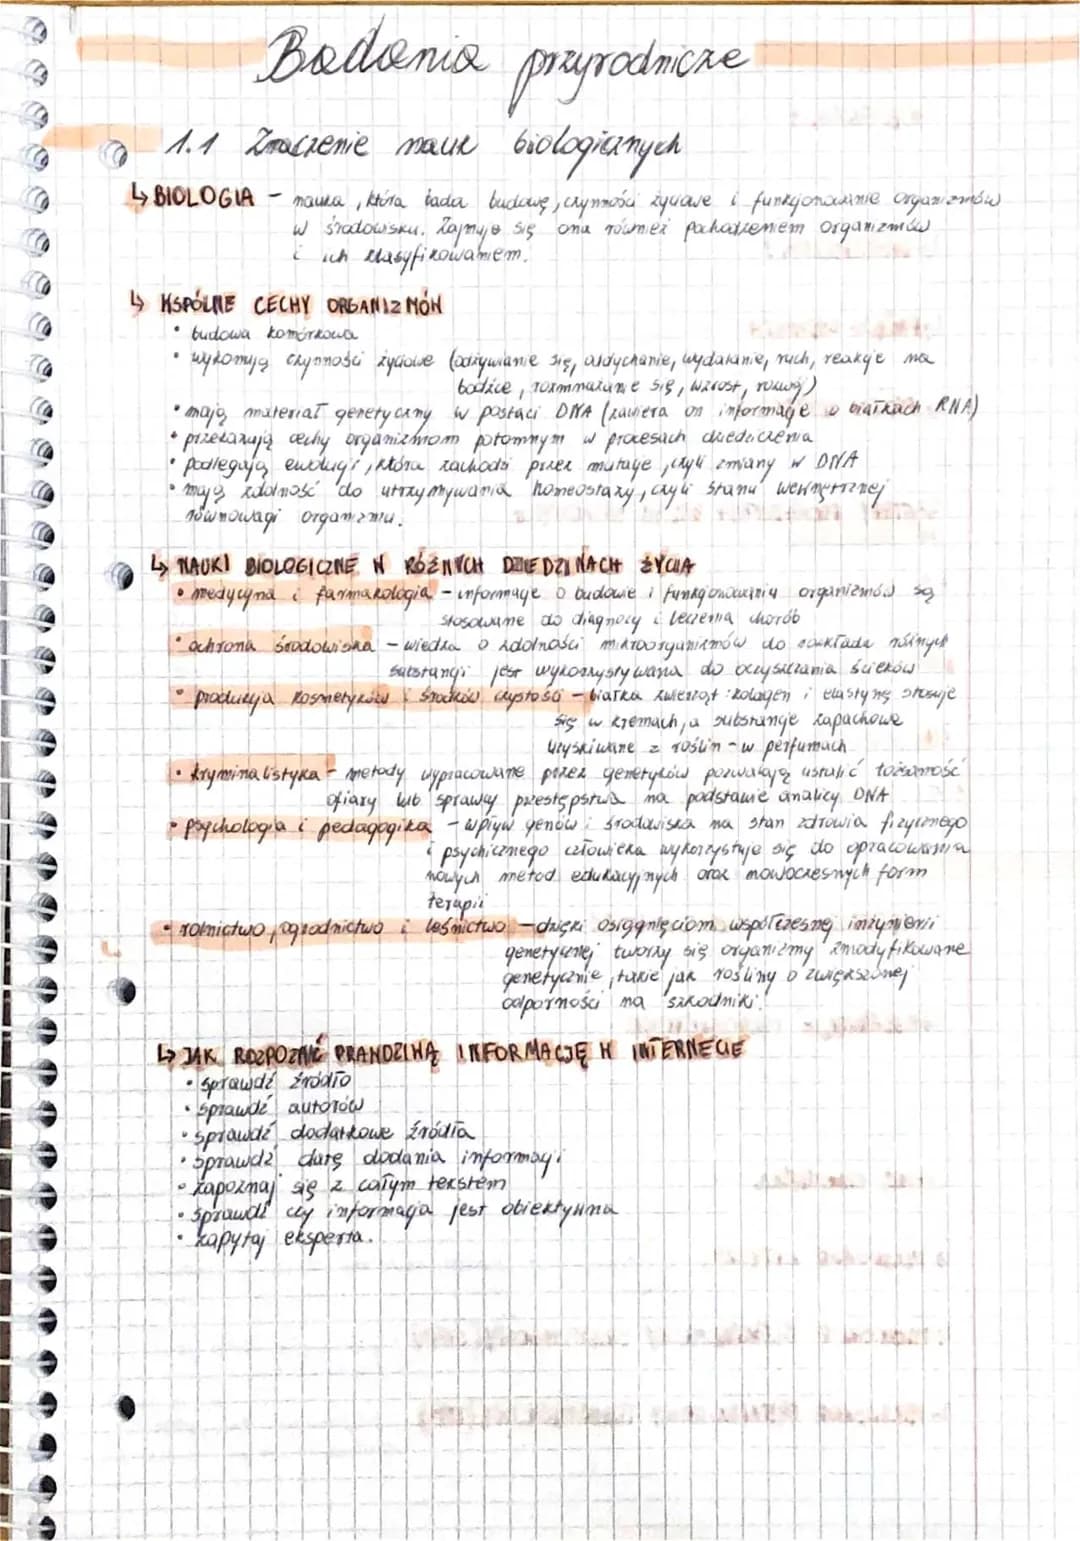 Badania przyrodnicze
1.1 Znaczenie nauk biologicznych
↳ BIOLOGIA - nauka, która bada budowę, czynności życiowe i funkcjonowanie organizmów
w środowisku. Zajmuje się ona również pochodzeniem organizmów
i ich klasyfikowaniem.
↳ WSPÓLNE CECHY ORGANIZMÓW
• budowa komórkowa
• wykonują czynności życiowe (odżywianie się, oddychanie, wydalanie, ruch, reakcje na
bodźce, rozmnażanie się, wzrost, rozwój)
• mają materiał genetyczny w postaci DNA (zawiera on informacje o białkach RNA)
• przekazują cechy organizmom potomnym w procesach dziedziczenia
• podlegają ewolucji, która zachodzi przez mutacje, czyli zmiany w DNA
• mają zdolność do utrzymywania homeostazy, czyli stanu wewnętrznej
równowagi organizmu.
↳ NAUKI BIOLOGICZNE W RÓŻNYCH DZIEDZINACH ŻYCIA
• medycyna i farmakologia - informacje o budowie i funkcjonowaniu organizmów są
stosowane do diagnozy i leczenia chorób
• ochrona środowiska - wiedza o zdolności mikroorganizmów do rozkładu różnych
substancji jest wykorzystywana do oczyszczania ścieków
• produkcja kosmetyków i środków czystości - białka zwierząt: kolagen i elastynę stosuje
się w kremach, a substancje zapachowe
uzyskiwane z roślin - w perfumach
• kryminalistyka - metody wypracowane przez genetyków pozwalają ustalić tożsamość
ofiary lub sprawcy przestępstwa na podstawie analizy DNA
• psychologia i pedagogika - wpływ genów i środowiska na stan zdrowia fizycznego
i psychicznego człowieka wykorzystuje się do opracowania
nowych metod edukacyjnych oraz nowoczesnych form
terapii
• rolnictwo, ogrodnictwo i leśnictwo - dzięki osiągnięciom współczesnej inżynierii
genetycznej tworzy się organizmy zmodyfikowane
genetycznie, takie jak rośliny o zwiększonej
odporności na szkodniki.
↳ JAK ROZPOZNAĆ PRAWDZIWĄ INFORMACJĘ W INTERNECIE
• sprawdź źródło
• sprawdź autorów
• sprawdź dodatkowe źródła
• sprawdź datę dodania informacji
• zapoznaj się z całym tekstem
• sprawdź czy informacja jest obiektywna
• zapytaj eksperta.